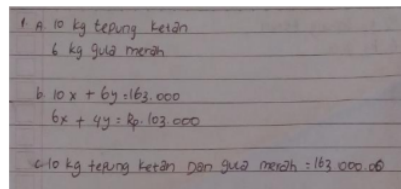 1. A. 10 kg tepung ketan
6 kg gula merah
b. 10x + 6y = 163.000
6x + 4y = Rp. 103.000
c. 10 kg tepung ketan Dan gula merah = 163 000.00